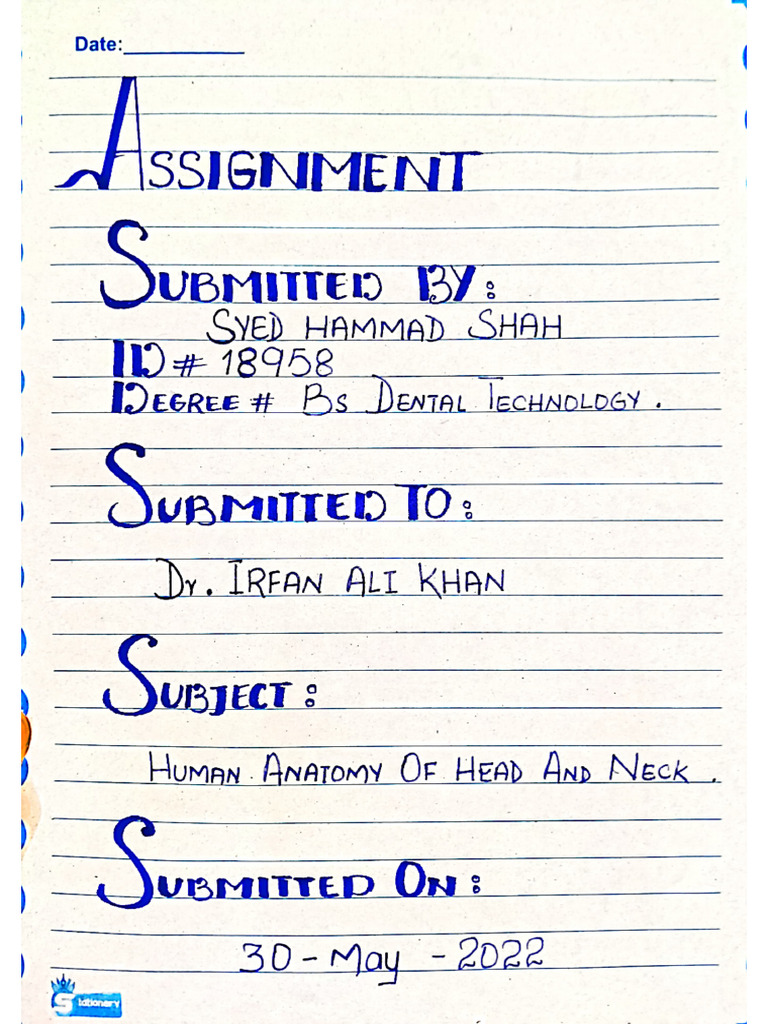 Date:
ASSIGNMENT
SUBMITTED BY:
SYED HAMMAD SHAH
ID # 18958
DEGREE # BS DENTAL TECHNOLOGY.
SUBMITTED TO:
Dr. IRFAN ALI KHAN
SUBJECT:
HUMAN ANATOMY OF HEAD AND NECK.
SUBMITTED ON:
30 - May - 2022
Stationery